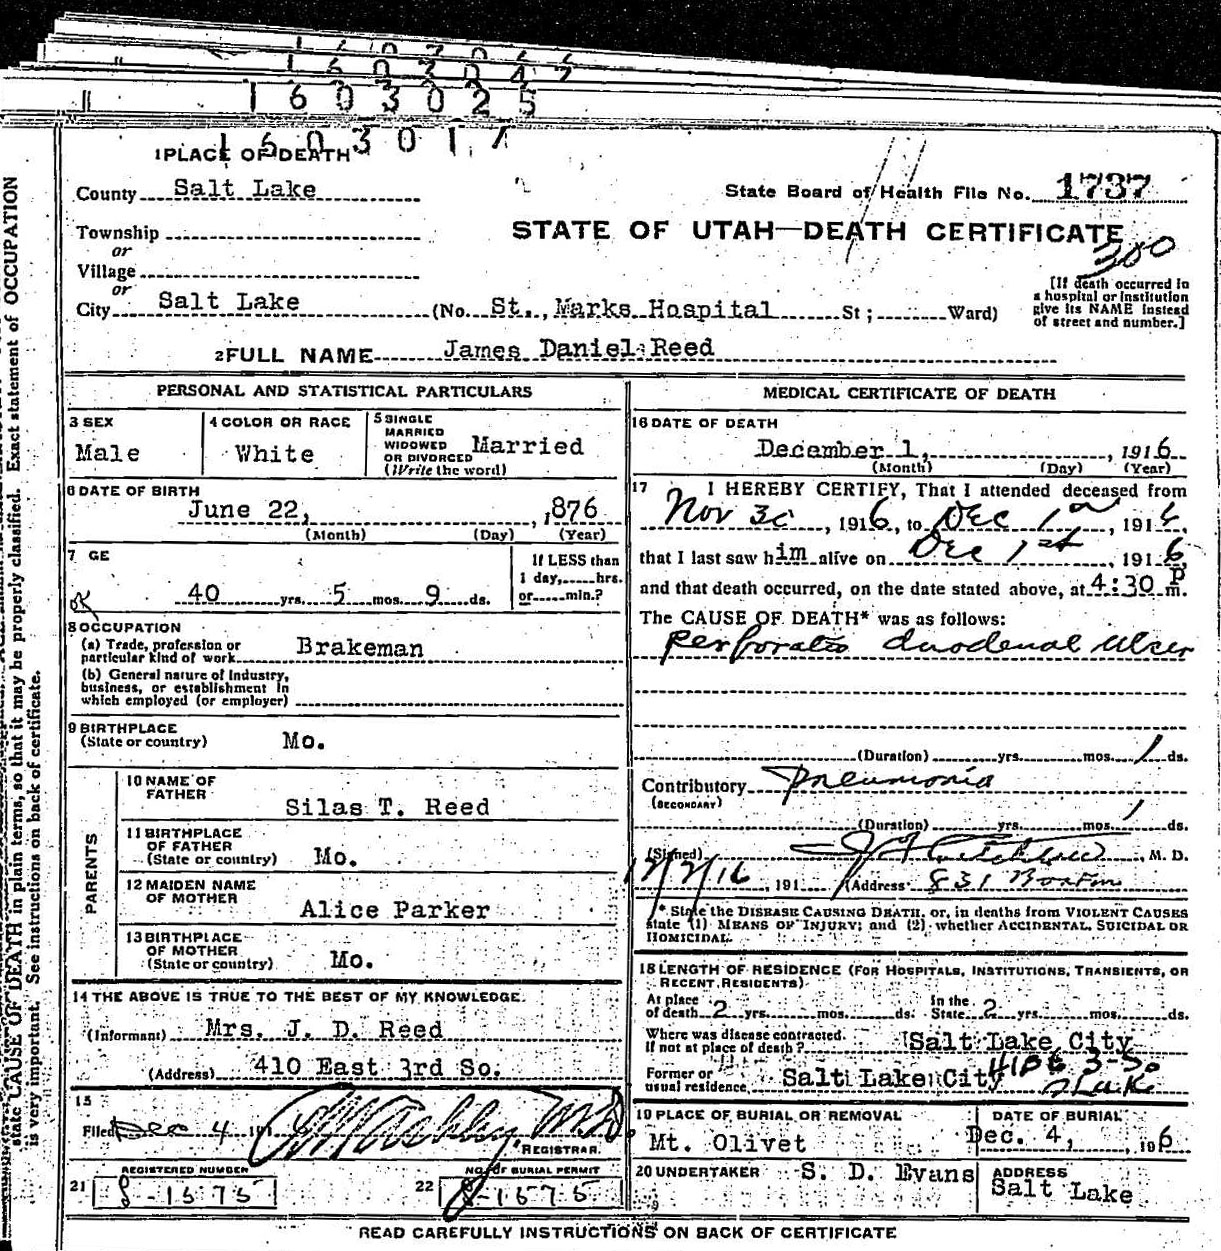 1603025
160301
1 PLACE OF DEATH
County Salt Lake
State Board of Health File No. 1737
STATE OF UTAH—DEATH CERTIFICATE
300
Township
or
Village
or
City Salt Lake (No. St., Marks Hospital St ; Ward)
[If death occurred in
a hospital or institution
give its NAME instead
of street and number.]
2 FULL NAME James Daniel Reed
PERSONAL AND STATISTICAL PARTICULARS
3 SEX
Male
4 COLOR OR RACE
White
5 SINGLE
MARRIED
WIDOWED
OR DIVORCED
(Write the word)
Married
6 DATE OF BIRTH
June 22, 1876
(Month) (Day) (Year)
7 GE
40 yrs. 5 mos. 9 ds.
If LESS than
1 day, hrs.
or min.?
8 OCCUPATION
(a) Trade, profession or
particular kind of work Brakeman
(b) General nature of Industry,
business, or establishment in
which employed (or employer)
9 BIRTHPLACE
(State or country) Mo.
PARENTS
10 NAME OF
FATHER
Silas T. Reed
11 BIRTHPLACE
OF FATHER
(State or country) Mo.
12 MAIDEN NAME
OF MOTHER
Alice Parker
13 BIRTHPLACE
OF MOTHER
(State or country) Mo.
14 THE ABOVE IS TRUE TO THE BEST OF MY KNOWLEDGE.
(Informant) Mrs. J. D. Reed
(Address) 410 East 3rd So.
15
Filed Dec 4 191
M.D.
REGISTRAR.
REGISTERED NUMBER
21 8-1575
NO. OF BURIAL PERMIT
22 8-1575
MEDICAL CERTIFICATE OF DEATH
16 DATE OF DEATH
December 1, 1916
(Month) (Day) (Year)
17 I HEREBY CERTIFY, That I attended deceased from
Nov 30, 1916, to Dec 1st, 1916,
that I last saw him alive on Dec 1st 1916
and that death occurred, on the date stated above, at 4:30 P m.
The CAUSE OF DEATH* was as follows:
Perforated duodenal Ulcer
(Duration) yrs. mos. 1 ds.
Contributory Pneumonia
(SECONDARY)
(Duration) yrs. mos. 1 ds.
(Signed) , M. D.
12/2/16, 191 (Address) 831 Boston
* State the DISEASE CAUSING DEATH, or, in deaths from VIOLENT CAUSES
state (1) MEANS OF INJURY; and (2) whether ACCIDENTAL, SUICIDAL OR
HOMICIDAL.
18 LENGTH OF RESIDENCE (FOR HOSPITALS, INSTITUTIONS, TRANSIENTS, OR
RECENT RESIDENTS)
At place
of death 2 yrs. mos. ds. In the
State 2 yrs. mos. ds.
Where was disease contracted.
If not at place of death? Salt Lake City
Former or
usual residence Salt Lake City
19 PLACE OF BURIAL OR REMOVAL
Mt. Olivet
DATE OF BURIAL
Dec. 4, 1916
20 UNDERTAKER S. D. Evans
ADDRESS
Salt Lake
READ CAREFULLY INSTRUCTIONS ON BACK OF CERTIFICATE
state CAUSE OF DEATH in plain terms, so that it may be properly classified. Exact statement of OCCUPATION
is very important. See instructions on back of certificate.